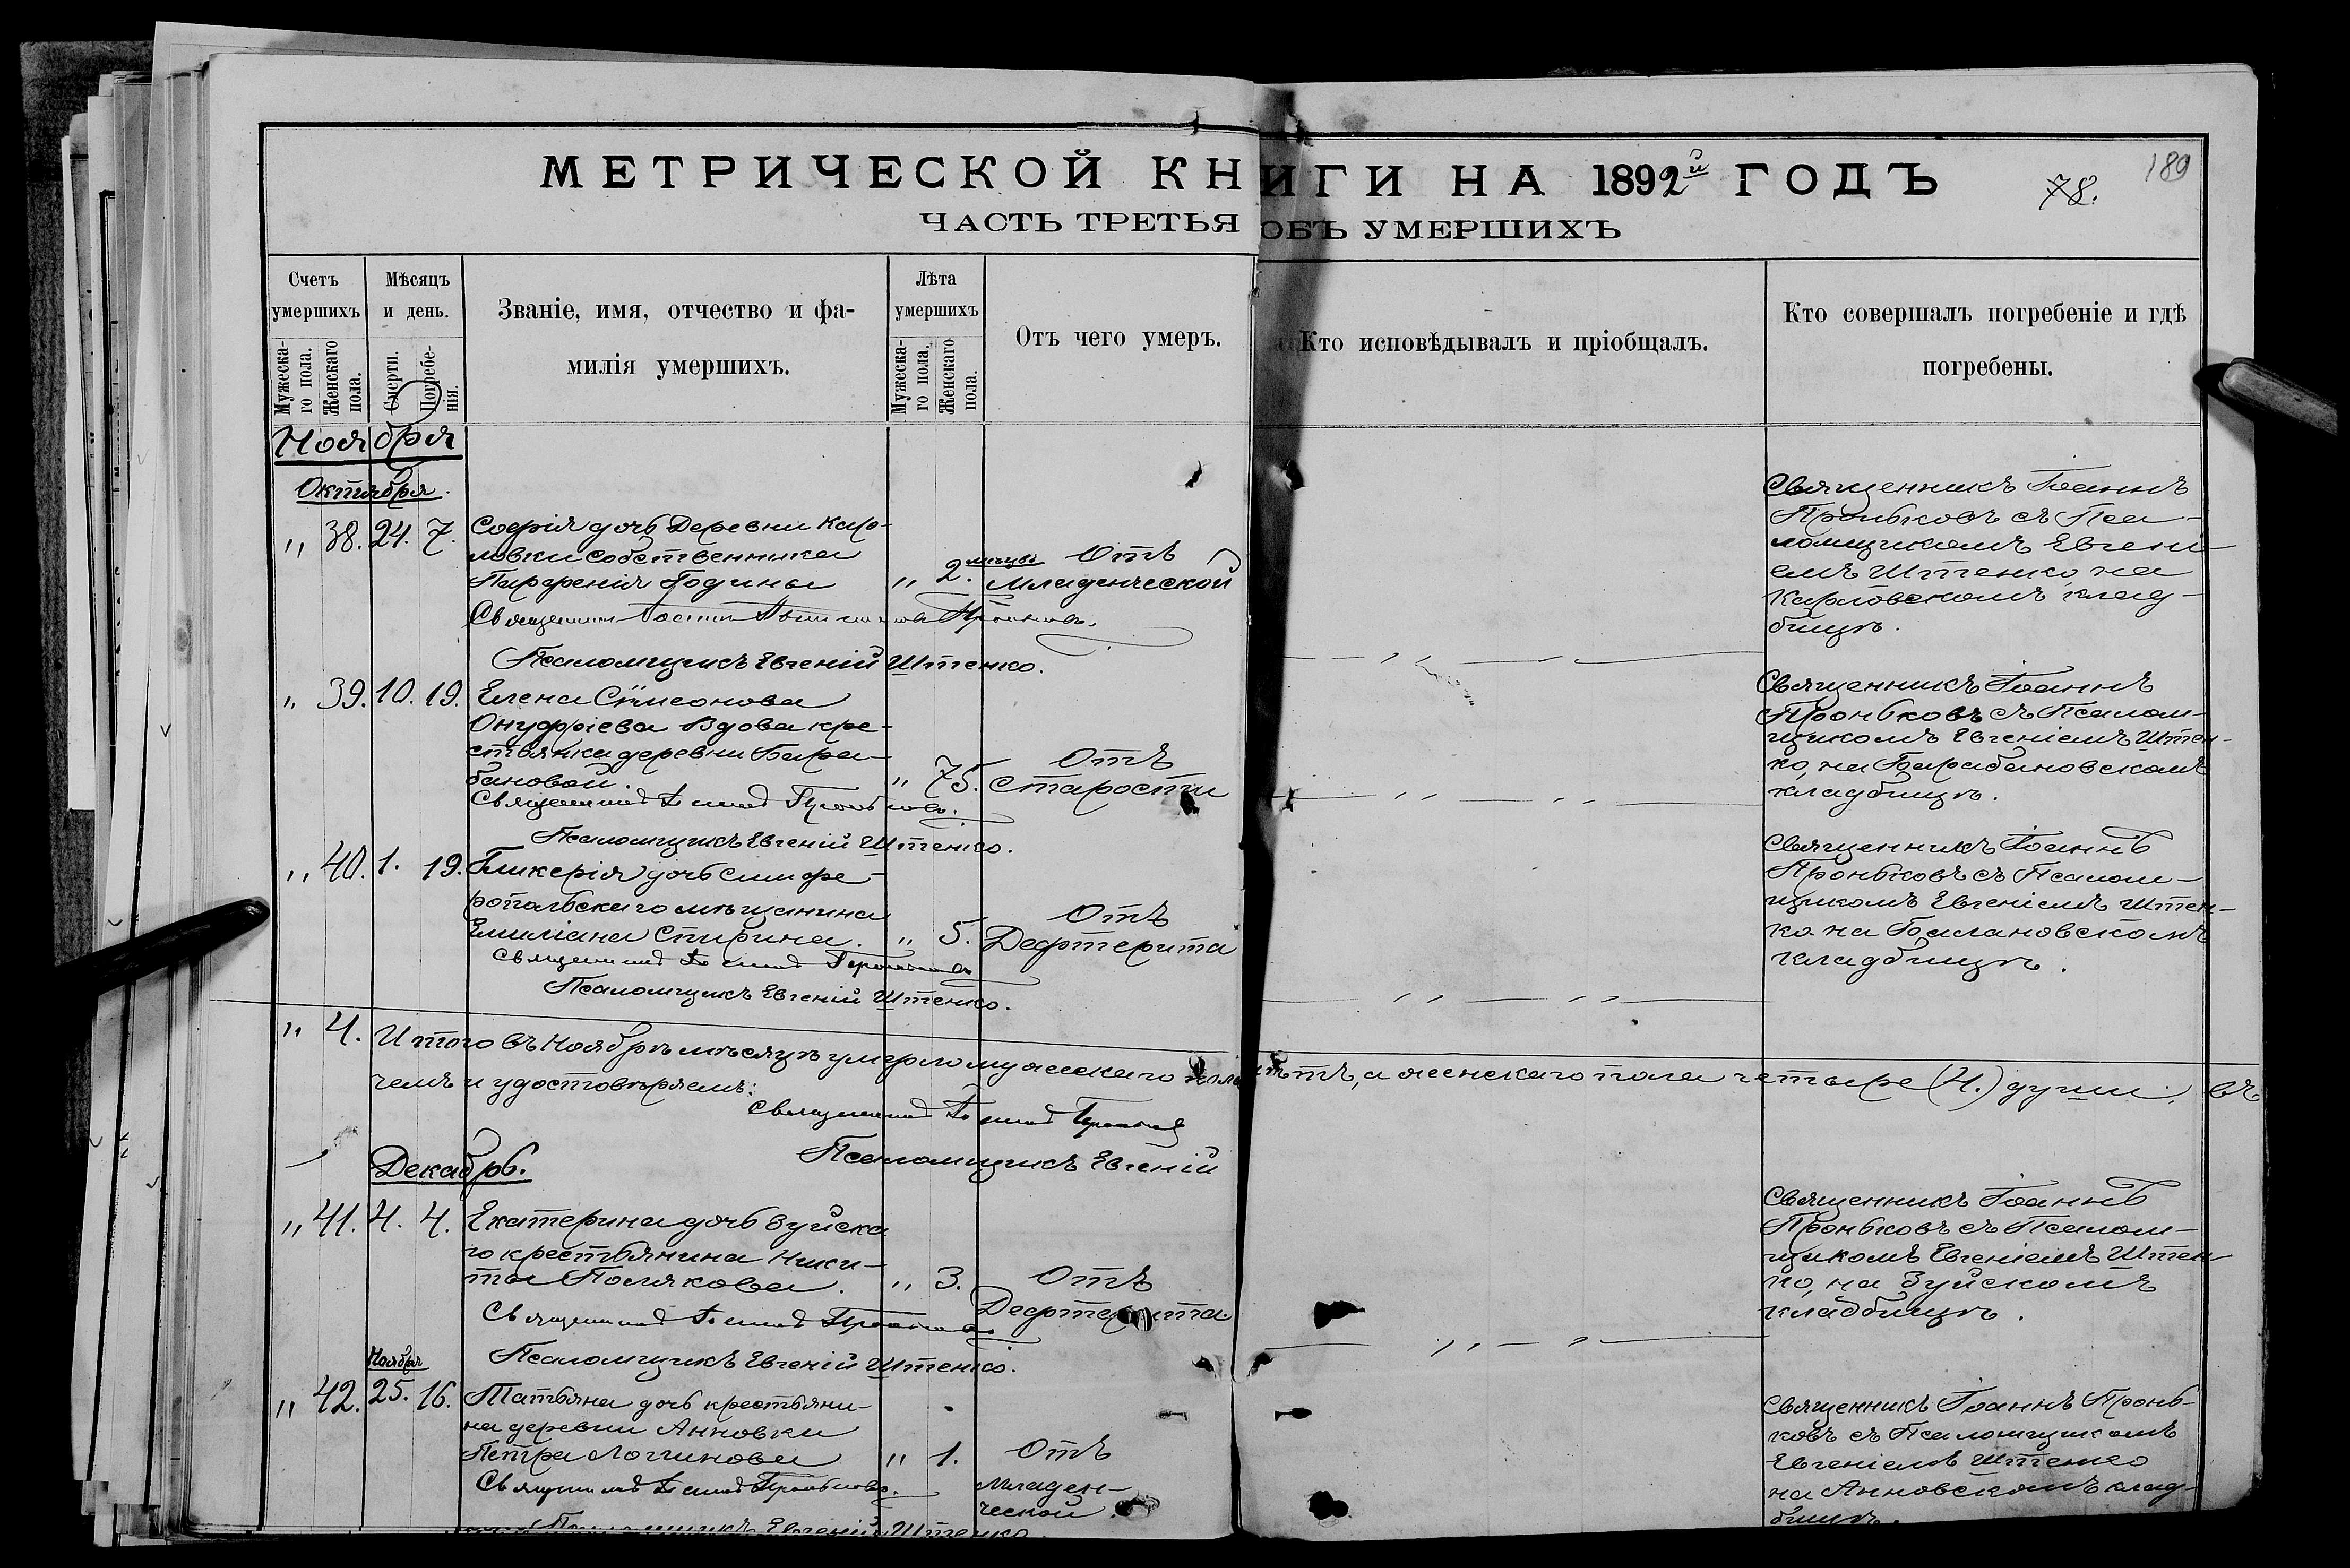 МЕТРИЧЕСКОЙ КНИГИ НА 1892й ГОДЪ
78.
189
ЧАСТЬ ТРЕТЬЯ ОБЪ УМЕРШИХЪ
Счетъ умершихъ
Мужеска-го пола.
Женскаго пола.
Мѣсяцъ и день.
Смерти.
Погребе-нія.
Званіе, имя, отчество и фа-
милія умершихъ.
Лѣта умершихъ
Мужеска-го пола.
Женскаго пола.
Отъ чего умеръ.
Кто исповѣдывалъ и пріобщалъ.
Кто совершалъ погребеніе и гдѣ
погребены.
Ноября
Октября.
„ 38. 24. 7. Софія дочь Деревни Кар-
ловки собственника
Парфенія Година
„ 2. мѣсяц.
Отъ
Младенческой
Священникъ Іоаннъ
Проньковъ съ Пса-
ломщикомъ Евгені-
емъ Штенко, на
Карловскомъ клад-
бищѣ.
Псаломщикъ Евгеній Штенко.
„ 39. 10. 19. Елена Симеонова
Онуфріева Вдова кре-
стьянка деревни Бара-
бановой.
„ 75.
Отъ
Старости
Священникъ Іоаннъ Проньковъ.
Псаломщикъ Евгеній Штенко.
Священникъ Іоаннъ
Проньковъ съ Псалом-
щикомъ Евгеніемъ Штен-
ко, на Барабановскомъ
кладбищѣ.
„ 40. 1. 19. Гликерія дочь симфе-
ропольскаго мѣщанина
Емиліана Спирина.
„ 5.
Отъ
Дефтерита
Священникъ Іоаннъ Проньковъ
Псаломщикъ Евгеній Штенко.
Священникъ Іоаннъ
Проньковъ съ Псалом-
щикомъ Евгеніемъ Штен-
ко на Балановскомъ
кладбищѣ.
„ 4. Итого въ Ноябрѣ мѣсяцѣ умерло мужескаго пола нѣтъ, а женскаго пола четыре (4.) души. въ
чемъ и удостовѣряемъ:
Священникъ Іоаннъ Проньковъ
Псаломщикъ Евгеній
Декабрь.
„ 41. 4. 4. Екатерина дочь Зуйска
го крестьянина Ники-
ты Полякова.
„ 3.
Отъ
Дефтерита
Священникъ Іоаннъ Проньковъ
Псаломщикъ Евгеній Штенко.
Священникъ Іоаннъ
Проньковъ съ Псалом-
щикомъ Евгеніемъ Штен-
ко, на Зуйскомъ
кладбищѣ.
Ноября
„ 42. 25. 16. Татьяна дочь крестьяни-
на деревни Анновки
Петра Логгинова
„ 1.
Отъ
Младен-
ческой.
Священникъ Іоаннъ Проньковъ.
Псаломщикъ Евгеній Штенко.
Священникъ Іоаннъ Пронь-
ковъ съ Псаломщикомъ
Евгеніемъ Штенко
на Анновскомъ клад-
бищѣ.